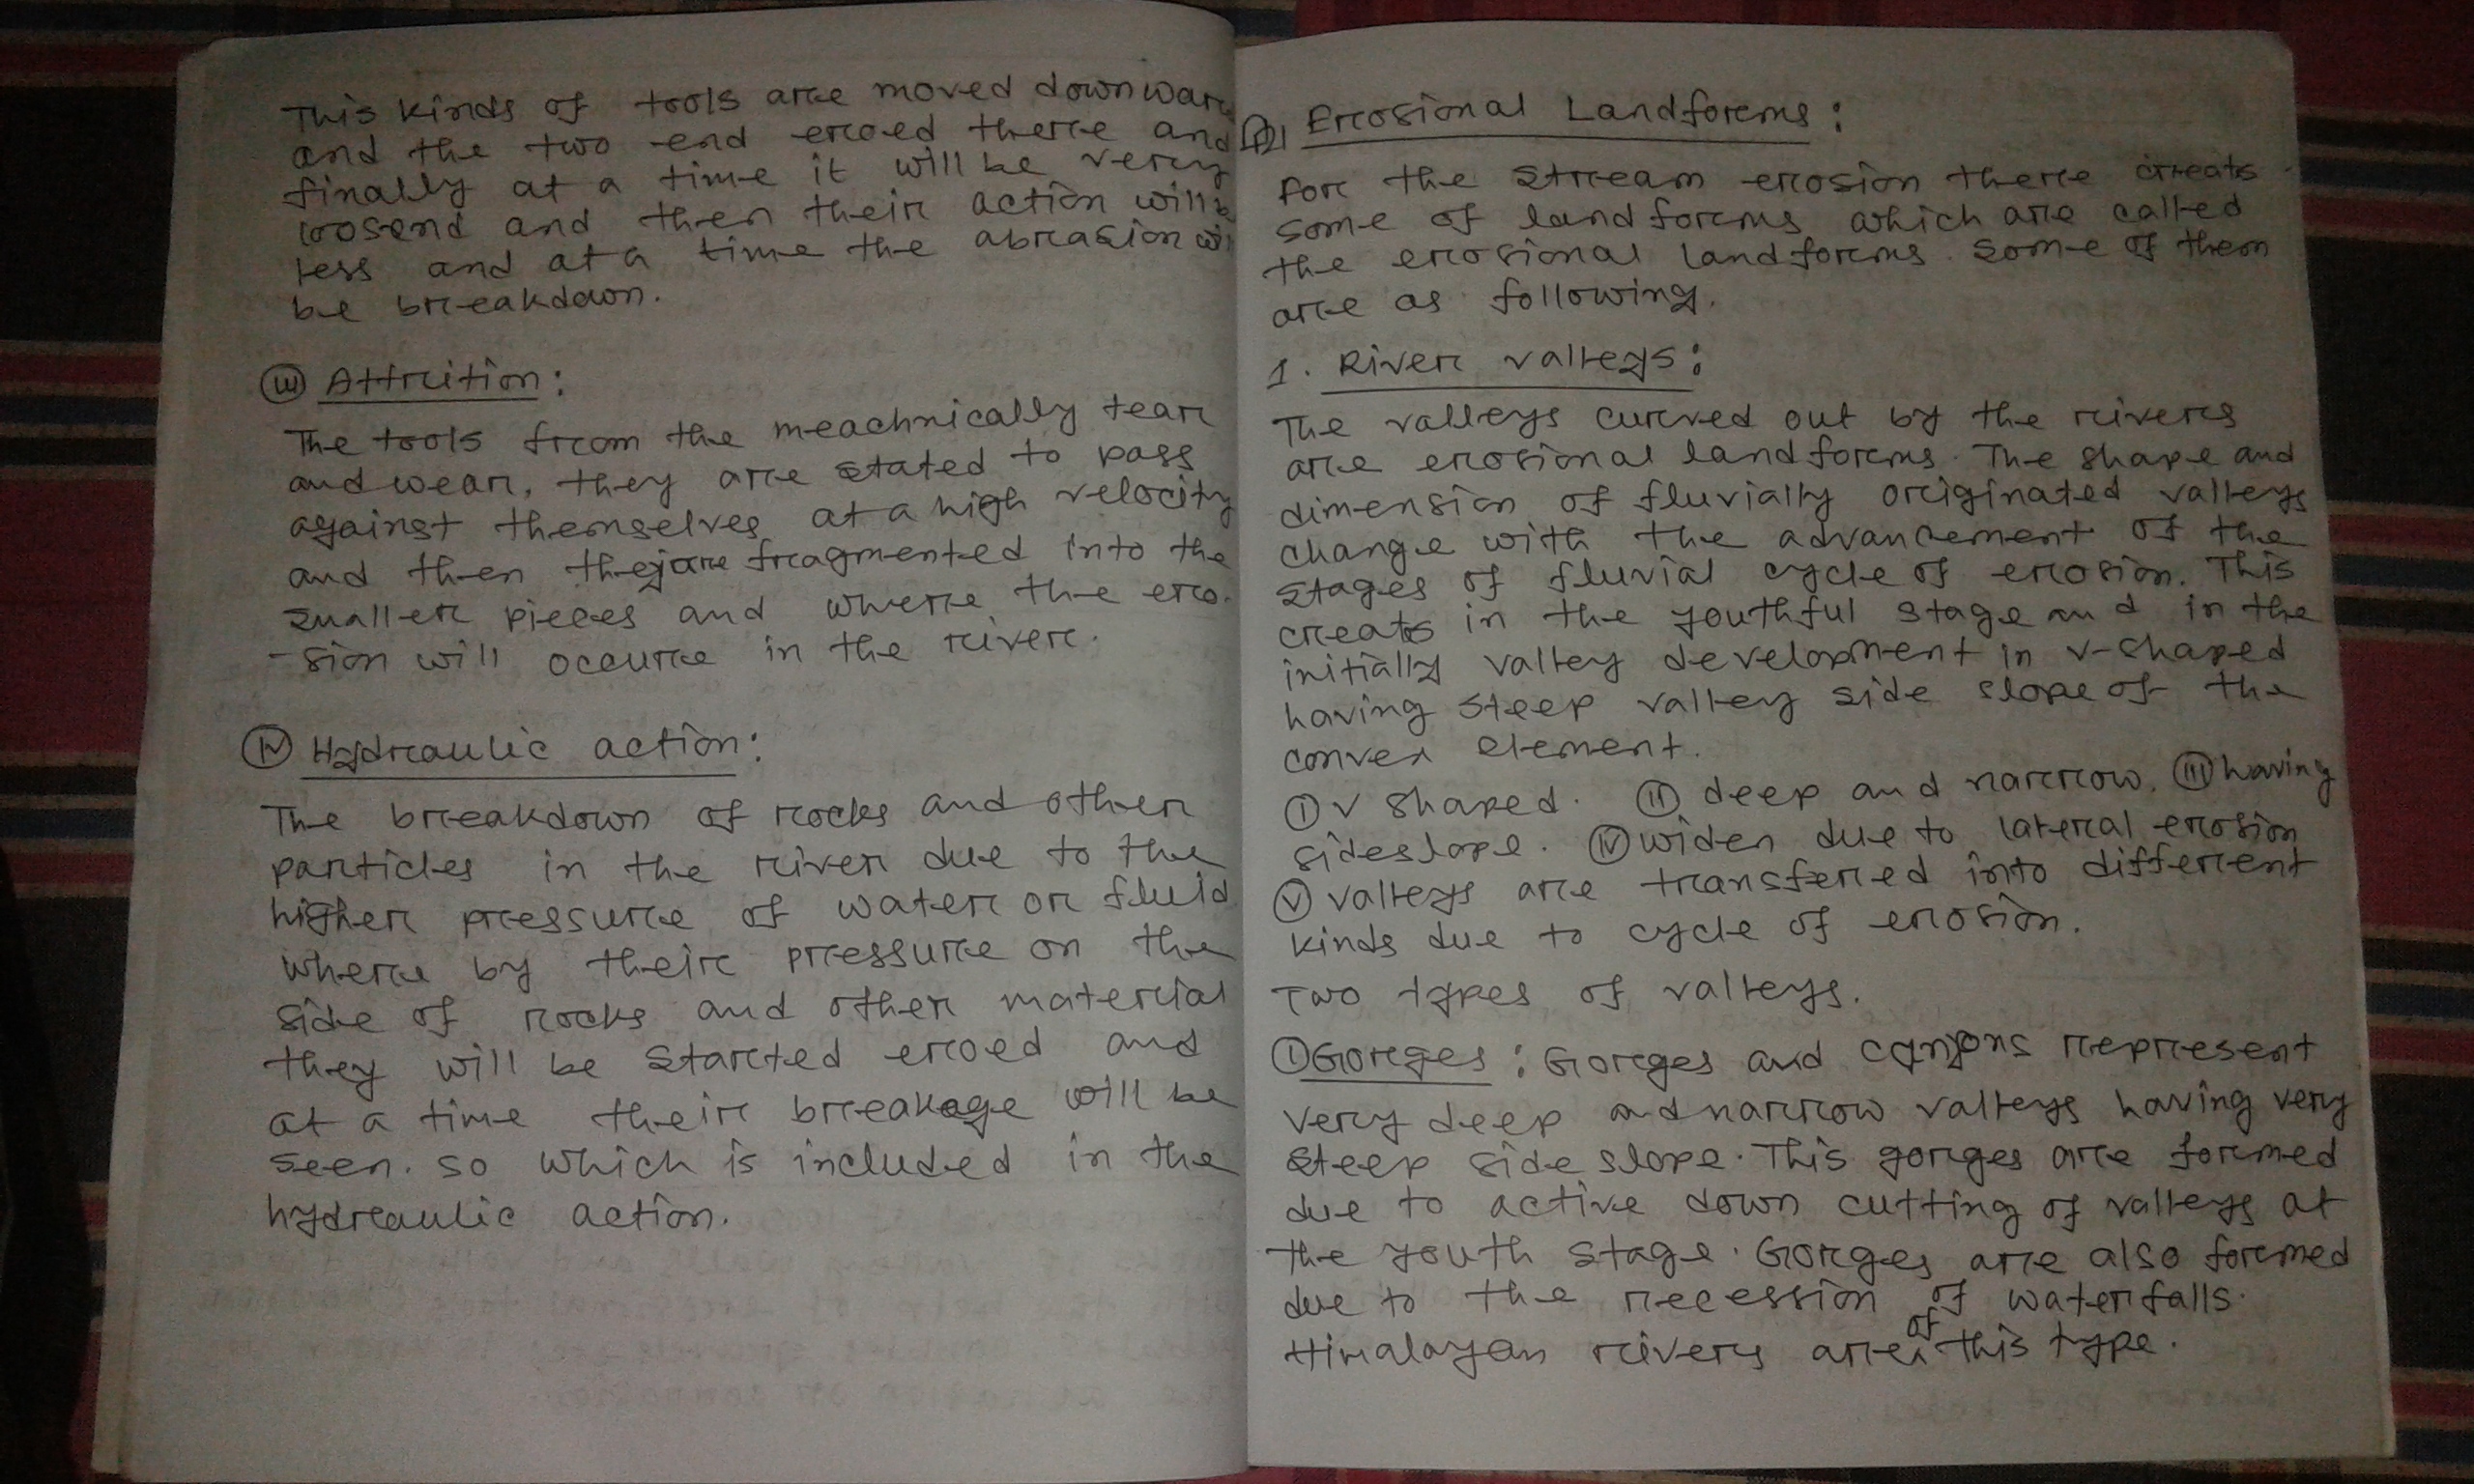 This kinds of tools are moved downward
and the two end eroed there and
finally at a time it will be very
loosend and then their action will be
less and at a time the abrasion wi
be breakdown.
(iii) Attrition:
The tools from the meachnically tear
and wear, they are stated to pass
against themselves at a high velocity
and then they are fragmented into the
smaller pieces and where the ero-
-sion will occure in the river.
(iv) Hydraulic action:
The breakdown of rocks and other
particles in the river due to the
higher pressure of water or fluid
where by their pressure on the
side of rocks and other material
they will be started eroed and
at a time their breakage will be
seen. so which is included in the
hydraulic action.
Erosional Landforms:
for the stream erosion there creats
some of landforms which are called
the erosional landforms. some of them
are as following.
1. River valleys:
The valleys curved out by the rivers
are erosional landforms. The shape and
dimension of fluvially originated valleys
change with the advancement of the
stages of fluvial cycle of erosion. This
creats in the youthful stage and in the
initially valley development in v-shaped
having steep valley side slope of the
convex element.
(i) v shaped. (ii) deep and narrow. (iii) having
sideslope. (iv) widen due to lateral erosion
(v) valleys are transferred into different
kinds due to cycle of erosion.
Two types of valleys.
(i) Gorges: Gorges and canyons represent
very deep and narrow valleys having very
steep side slope. This gorges are formed
due to active down cutting of valleys at
the youth stage. Gorges are also formed
due to the recession of waterfalls.
Himalayan rivers are of this type.